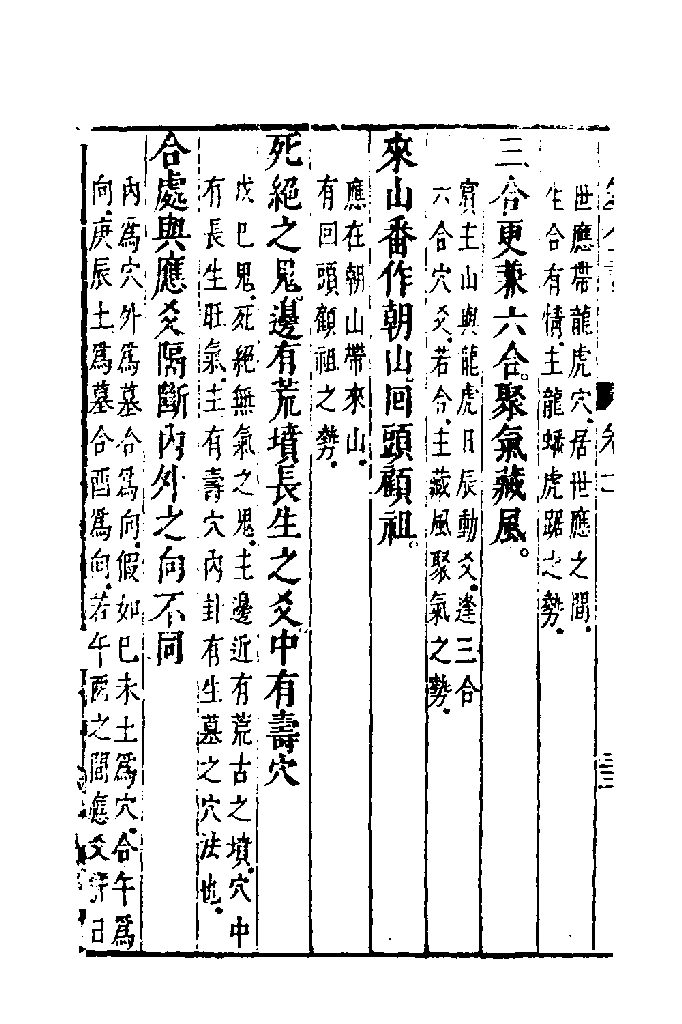 世應帶龍虎穴居世應之間
生合有情主龍蟠虎踞之勢
三合更兼六合聚氣藏風
賓主山與龍虎日辰動爻逢三合
六合穴爻若合主藏風聚氣之勢
來山番作朝山回頭顧祖
應在朝山帶來山
有回頭顧祖之勢
死絕之鬼邊有荒墳長生之爻中有壽穴
戊巳鬼死絕無氣之鬼主邊近有荒古之墳穴中
有長生旺氣主有壽穴內卦有生墓之穴法也
合處與應爻隔斷內外之向不同
內爲穴外爲墓合爲向假如巳未土爲穴合午爲
向庚辰土爲墓合酉爲向若午酉之間應爻